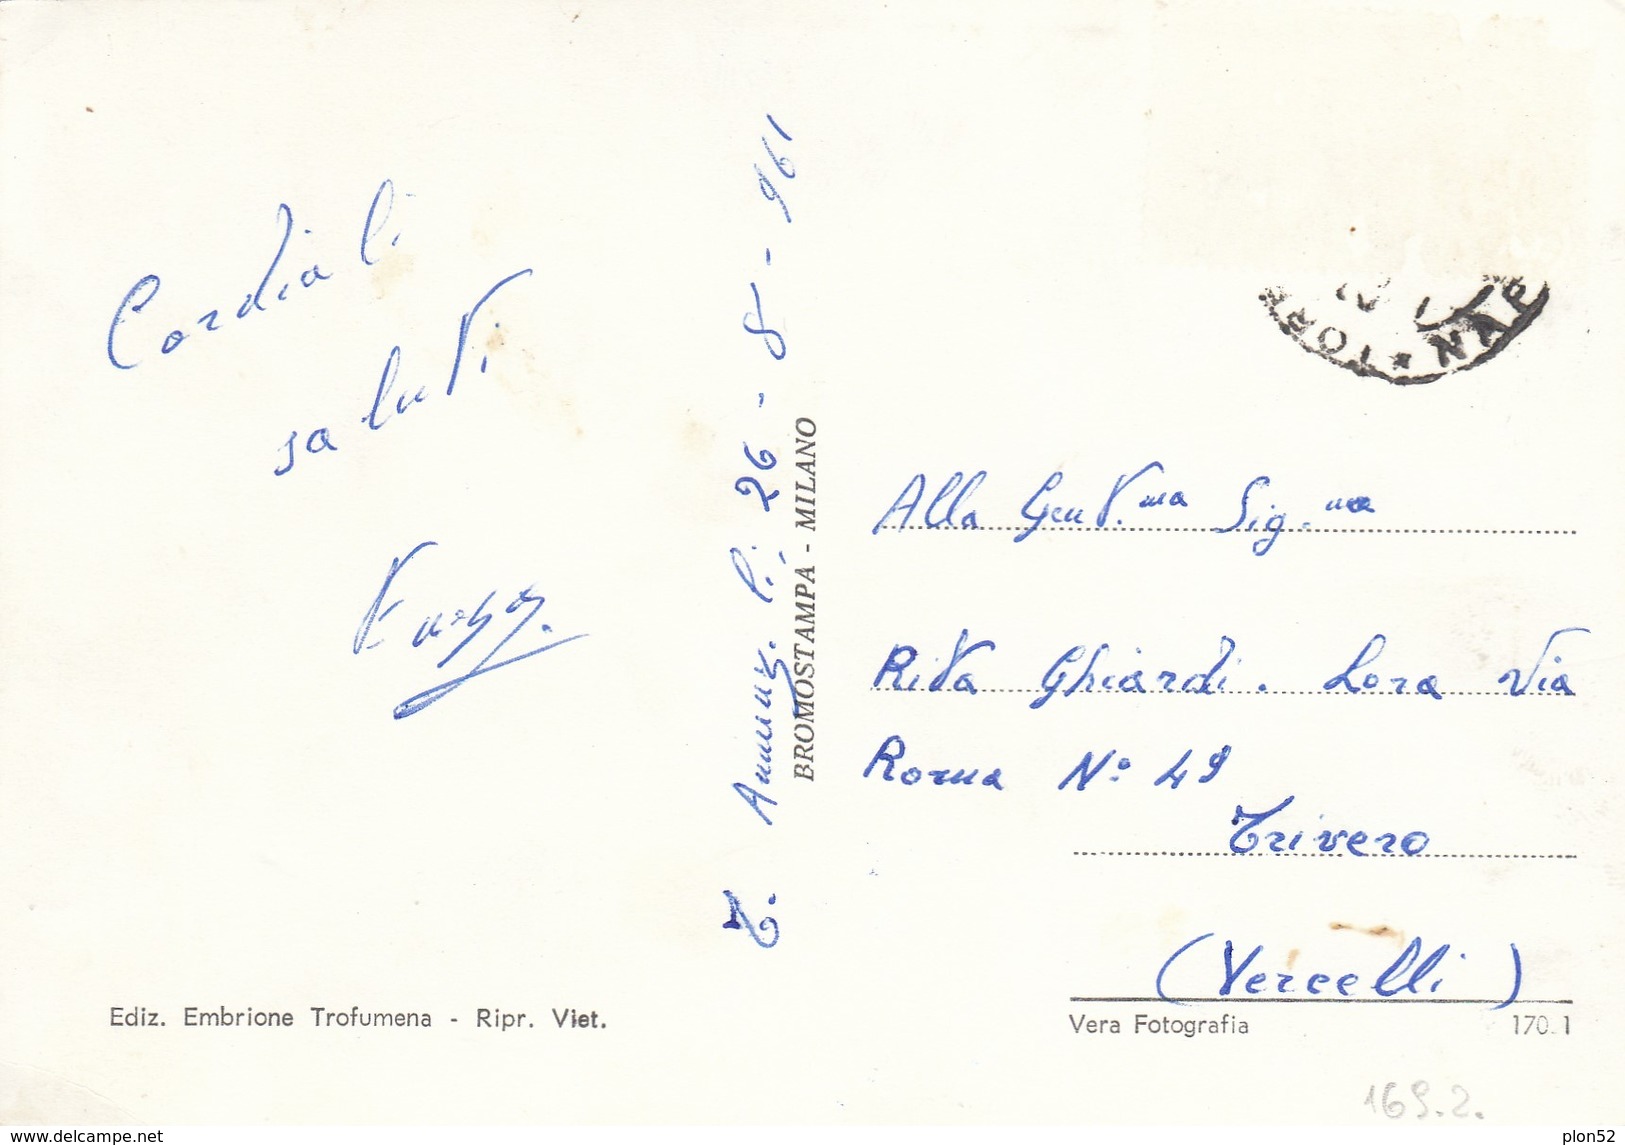 Cordiali
saluti
T. Annunz. li, 26 - 8 - 961
BROMOSTAMPA - MILANO
TORRE * NAP
Alla Gent.ma Sig.na
Rita Ghiardi. Lora Via
Roma N° 49
Trivero
(Vercelli)
Ediz. Embrione Trofumena - Ripr. Viet.
Vera Fotografia
170.1
169.2.
plon52